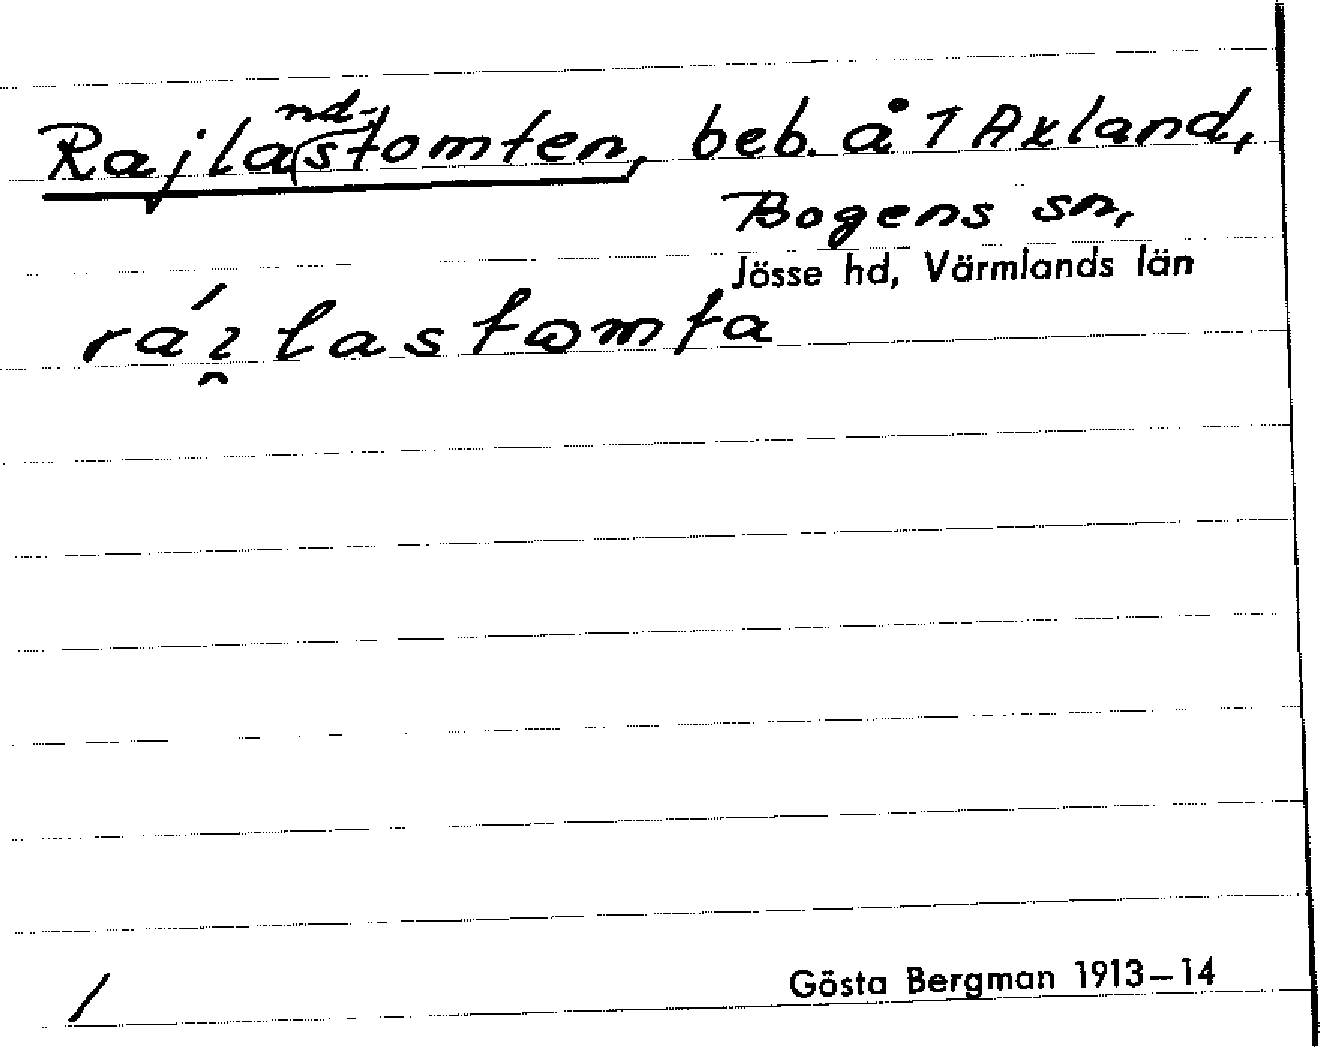 Rajlastomten, beb. å 1 Axland,
nd-
Bogens sn,
Jösse hd, Värmlands län
rái̯lastomta
/
Gösta Bergman 1913–14